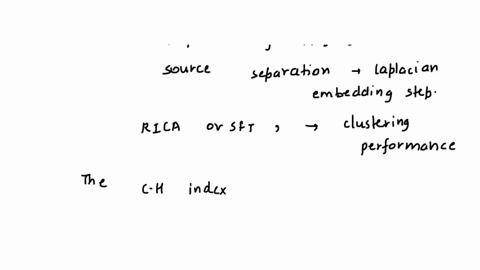 source separation → laplacian
embedding step.
RICA or SFT, → clustering
performance
The C-H index